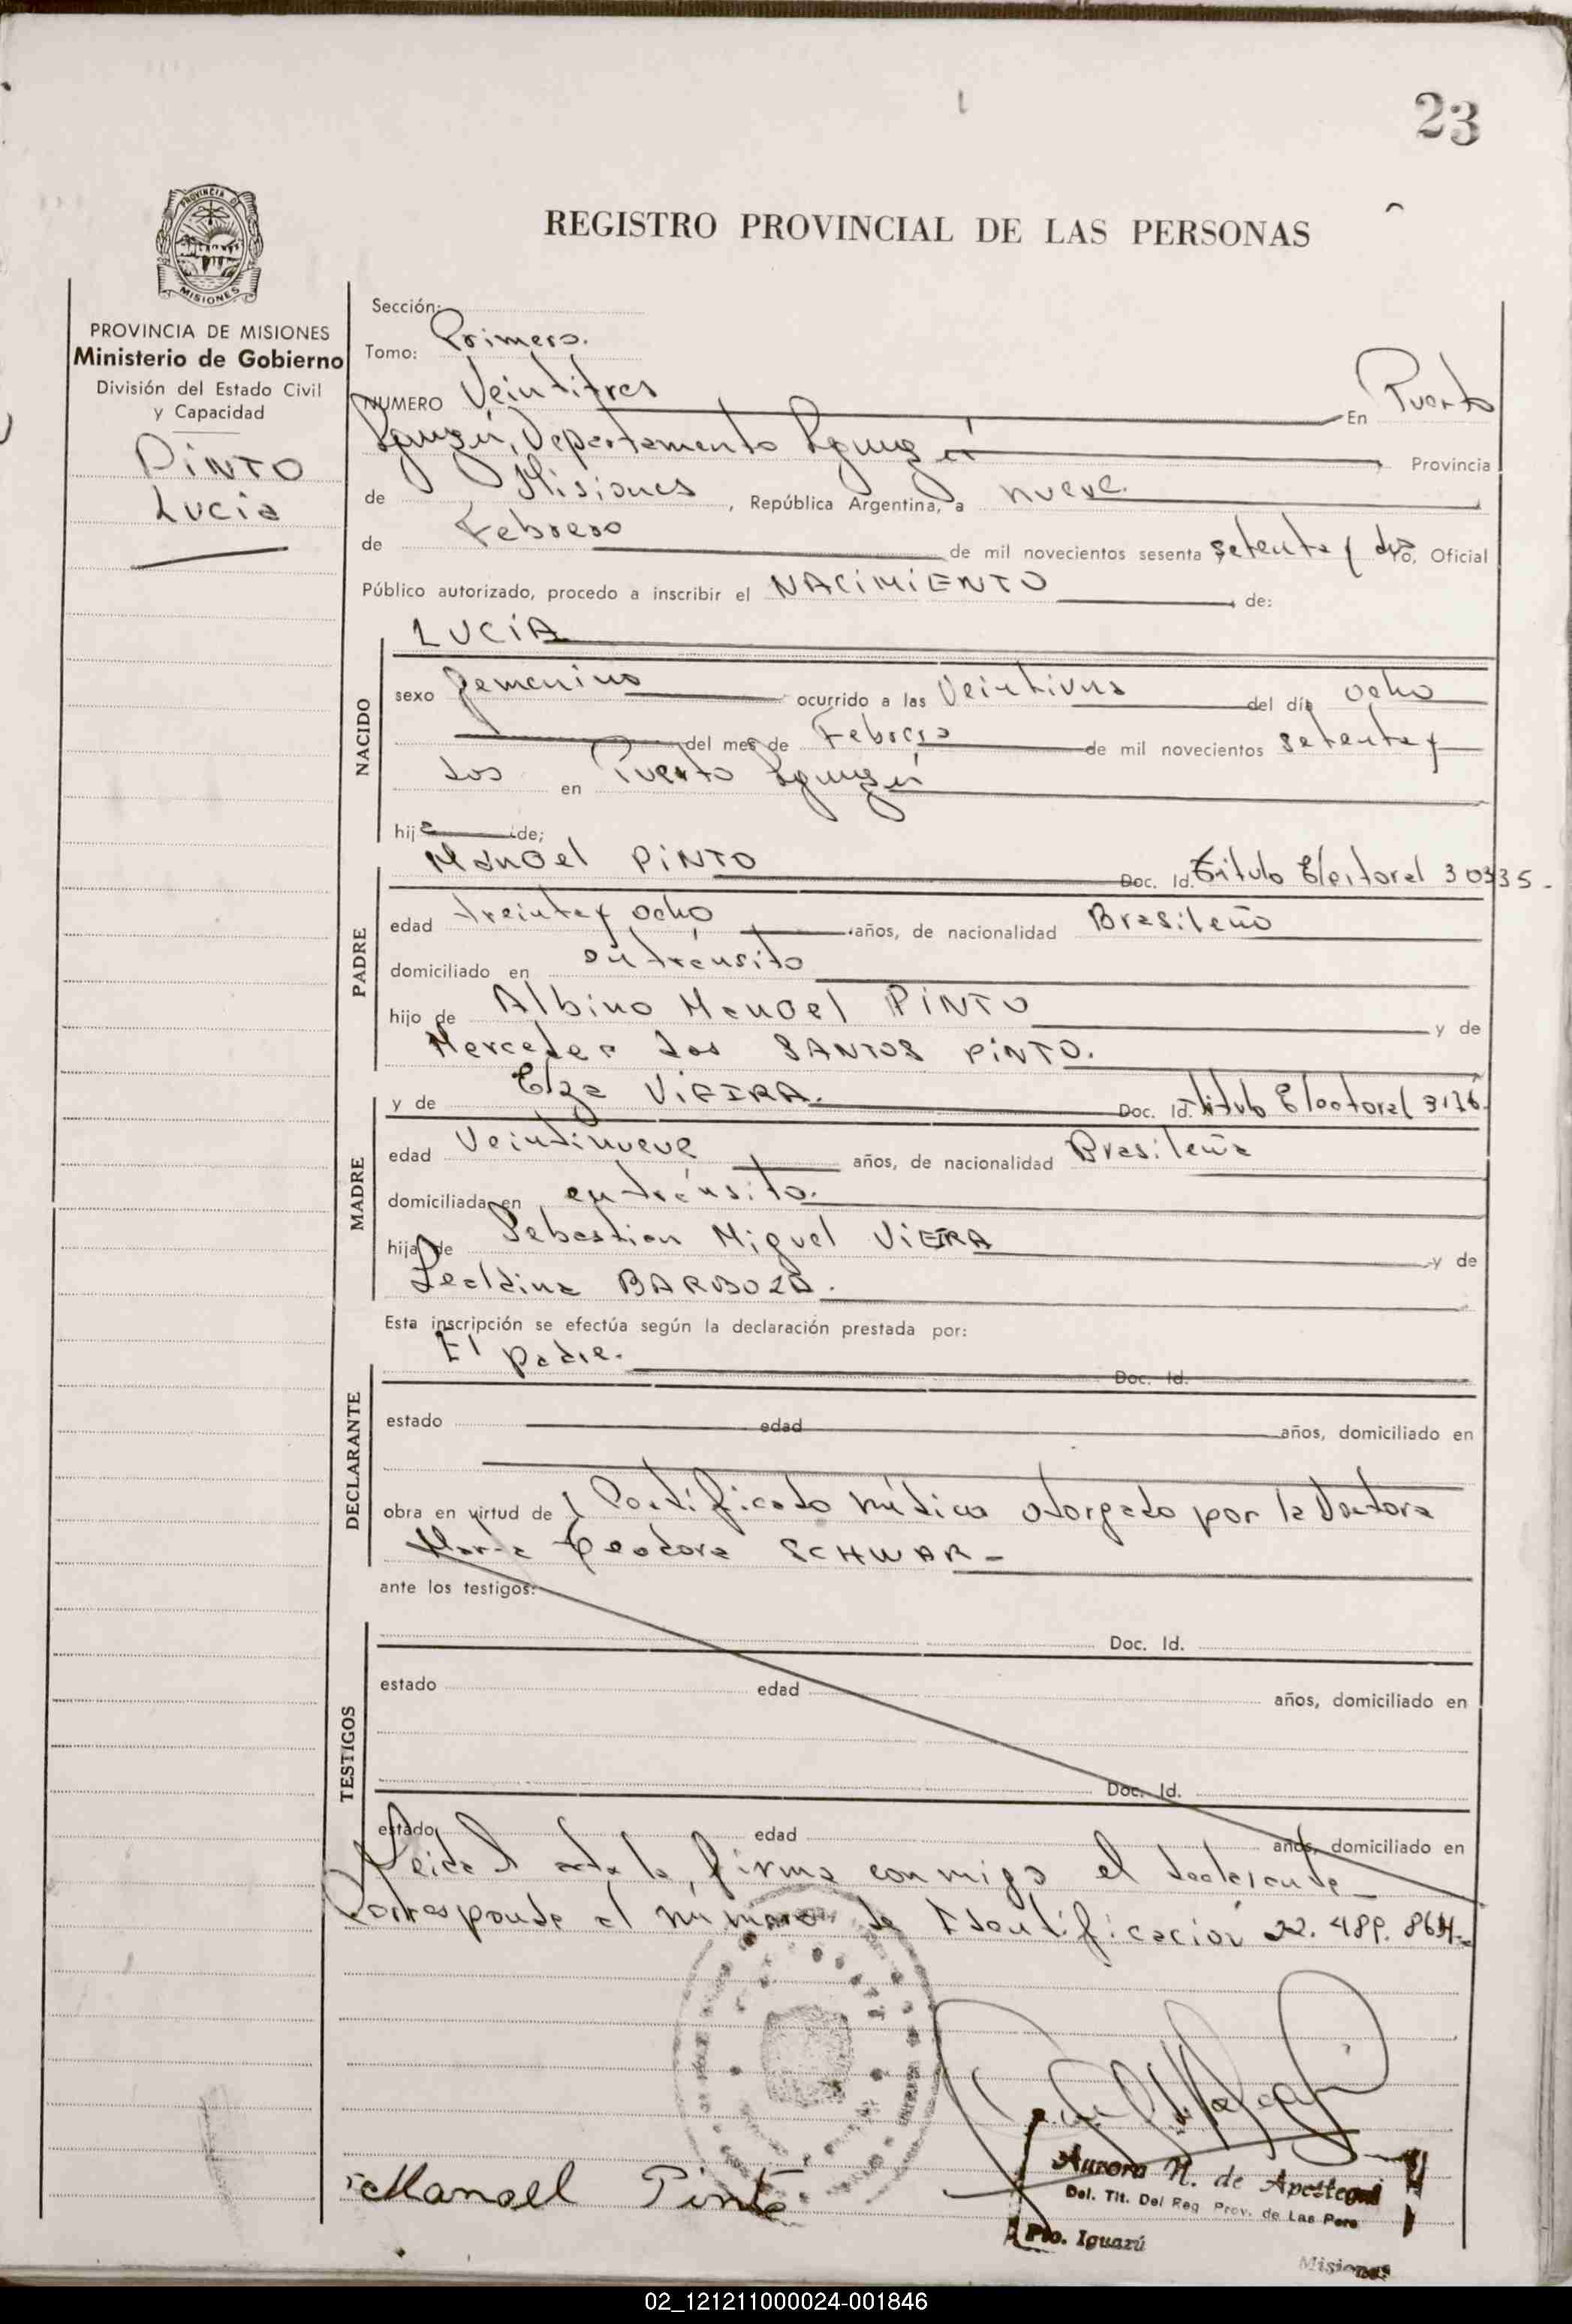 23
REGISTRO PROVINCIAL DE LAS PERSONAS
PROVINCIA
MISIONES
PROVINCIA DE MISIONES
Ministerio de Gobierno
División del Estado Civil
y Capacidad
PINTO
Lucia
Sección:
Tomo: Primero.
NUMERO Veintitres En Puerto
Iguazú, Departamento Iguazú, Provincia
de Misiones, República Argentina, a nueve
de Febrero de mil novecientos sesenta setenta y dos, Oficial
Público autorizado, procedo a inscribir el NACIMIENTO, de:
NACIDO
LUCIA
sexo femenino ocurrido a las Veintiuna del día ocho
del mes de Febrero de mil novecientos setenta y
dos en Puerto Iguazú
hija de;
PADRE
Manoel PINTO Doc. Id. Título Eleitoral 30335.
edad treinta y ocho años, de nacionalidad Brasileño
domiciliado en en tránsito
hijo de Albino Manoel PINTO y de
Mercedes dos SANTOS PINTO.
MADRE
y de Elza VIEIRA. Doc. Id. Titulo Electoral
edad Veintinueve años, de nacionalidad Brasileña
domiciliada en en tránsito.
hija de Sebastian Miguel VIEIRA y de
BARBOZA.
Esta inscripción se efectúa según la declaración prestada por:
DECLARANTE
El padre. Doc. Id.
estado edad años, domiciliado en
obra en virtud de Certificado médico otorgado por la Doctora
Maria Teodora SCHWAR -
ante los testigos:
TESTIGOS
Doc. Id.
estado edad años, domiciliado en
Doc. Id.
estado edad años, domiciliado en
Leida el acta la firma conmigo el declarante
Corresponde el número de Identificación 22.489.864.
Manoel Pinto
Aurora N. de Apestegui
Del. Tit. Del Reg. Prov. de Las Pers
Pto. Iguazú
Misiones
02_121211000024-001846